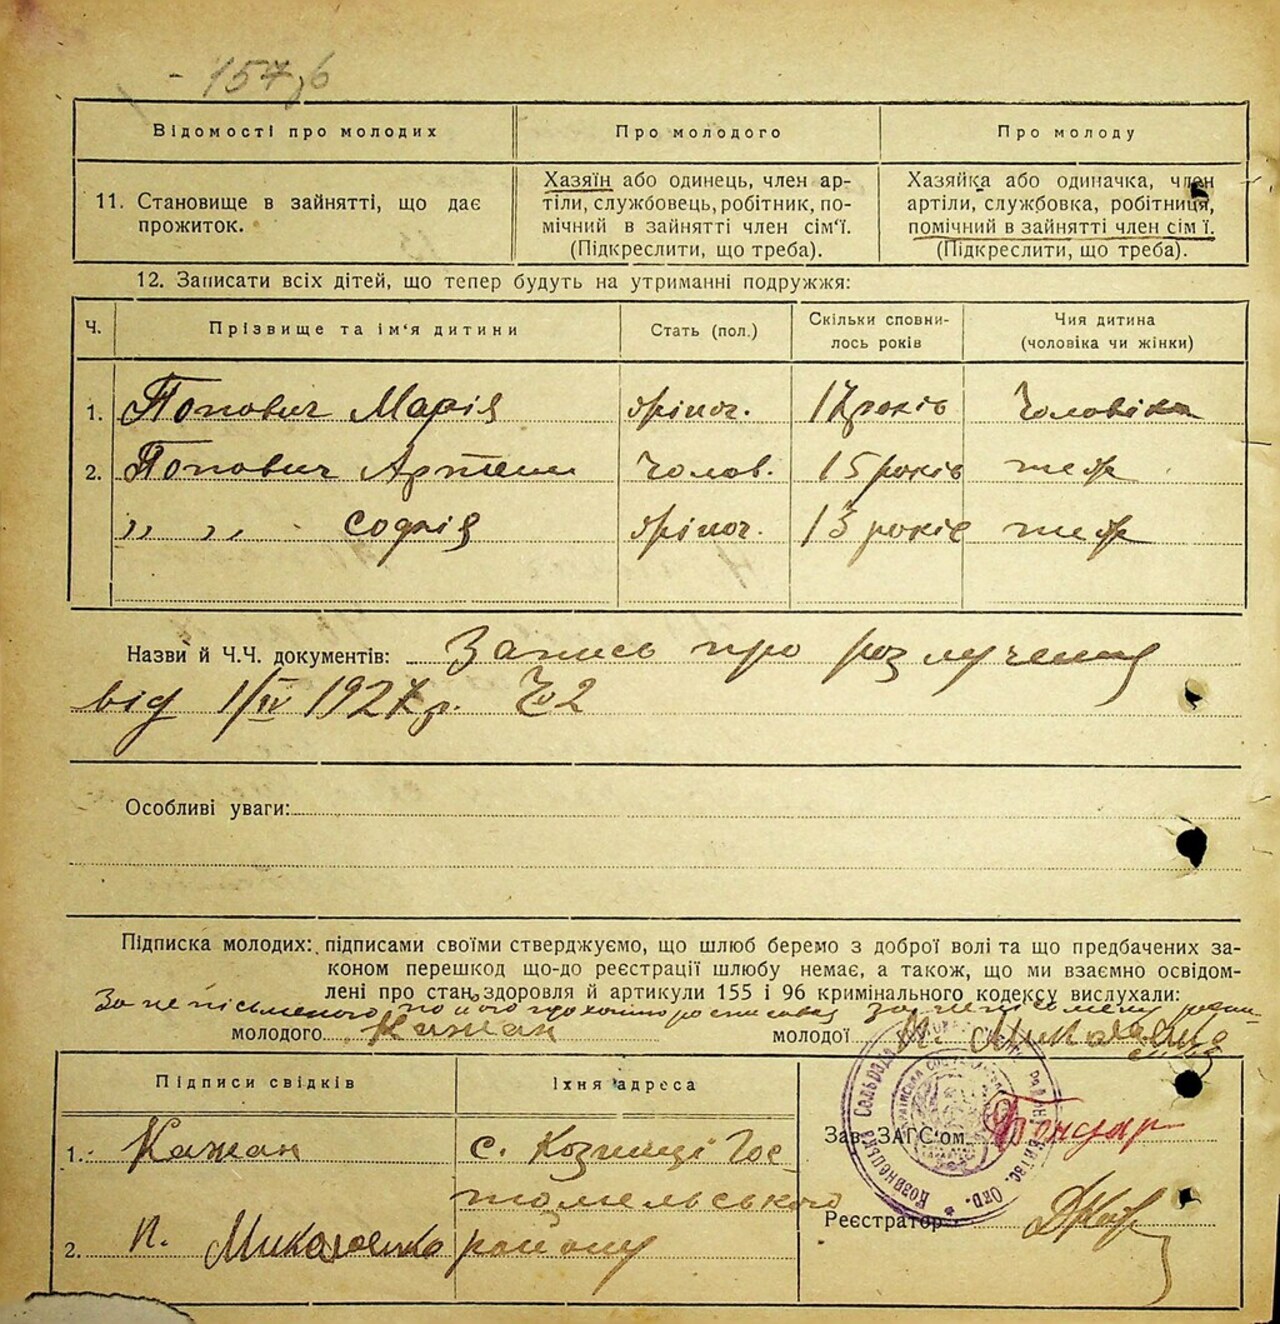 157,6
Відомості про молодих Про молодого Про молоду
11. Становище в зайнятті, що дає прожиток.
Хазяїн або одинець, член ар-
тіли, службовець, робітник, по-
мічний в зайнятті член сім'ї.
(Підкреслити, що треба).
Хазяйка або одиначка, член
артіли, службовка, робітниця,
помічний в зайнятті член сім ї.
(Підкреслити, що треба).
12. Записати всіх дітей, що тепер будуть на утриманні подружжя:
Ч. Прізвище та ім'я дитини Стать (пол.) Скільки сповни-
лось років Чия дитина
(чоловіка чи жінки)
1. Попович Марія жіноч. 17 років Чоловіка
2. Попович Артем чолов. 15 років теж
„ „ Софія жіноч. 13 років теж
Назви й Ч.Ч. документів: Запис про розлучення
від 1/IV 1927 р. Ч 2
Особливі уваги:
Підписка молодих: підписами своїми стверджуємо, що шлюб беремо з доброї волі та що предбачених за-
коном перешкод що-до реєстрації шлюбу немає, а також, що ми взаємно освідом-
лені про стан здоровля й артикули 155 і 96 кримінального кодексу вислухали:
За неписьменого по його проханню росписався за неписьмену
молодого Кажан молодої П. Миколаєнко
Підписи свідків Їхня адреса
1. Кажан с. Козинці Гос-
томельського
2. П. Миколаєнко району
Зав. ЗАГС'ом Бондар
Реєстратор